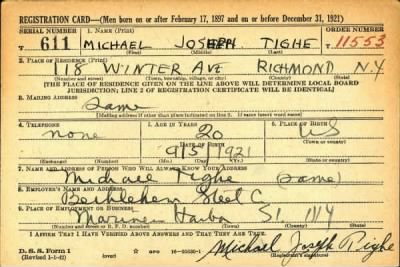 REGISTRATION CARD—(Men born on or after February 17, 1897 and on or before December 31, 1921)
SERIAL NUMBER 1. NAME (Print) ORDER NUMBER
T 611 MICHAEL JOSEPH TIGHE 11553
(First) (Middle) (Last)
2. PLACE OF RESIDENCE (Print)
18 WINTER AVE RICHMOND N.Y
(Number and street) (Town, township, village, or city) (County) (State)
[THE PLACE OF RESIDENCE GIVEN ON THE LINE ABOVE WILL DETERMINE LOCAL BOARD
JURISDICTION; LINE 2 OF REGISTRATION CERTIFICATE WILL BE IDENTICAL]
3. MAILING ADDRESS
Same
[Mailing address if other than place indicated on line 2. If same insert word same]
4. TELEPHONE 5. AGE IN YEARS 6. PLACE OF BIRTH
none 20 US
DATE OF BIRTH (Town or county)
9/5/1921
(Exchange) (Number) (Mo.) (Day) (Yr.) (State or country)
7. NAME AND ADDRESS OF PERSON WHO WILL ALWAYS KNOW YOUR ADDRESS
Michael Tighe (Same)
8. EMPLOYER'S NAME AND ADDRESS
Bethlehem Steel C
9. PLACE OF EMPLOYMENT OR BUSINESS
Mariners Harbor S.I. NY
(Number and street or R. F. D. number) (Town) (County) (State)
I AFFIRM THAT I HAVE VERIFIED ABOVE ANSWERS AND THAT THEY ARE TRUE.
D. S. S. Form 1
(Revised 1-1-42) (over) Michael Joseph Tighe
(Registrant's signature)